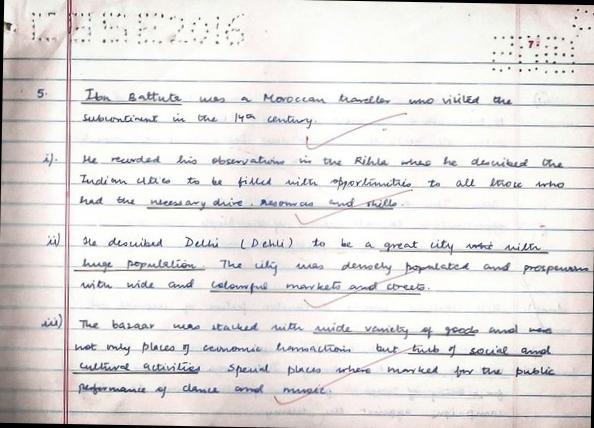 CBSE2016
7
5. Ibn Battuta was a Moroccan traveller who visited the
subcontinent in the 14th century.
i). He recorded his observations in the Rihla where he described the
Indian cities to be filled with opportunities to all those who
had the necessary drive, resources and skills.
ii) He described Delhi (Dehli) to be a great city with
huge population The city was densely populated and prosperous
with wide and colourful markets and streets.
iii) The bazaar was stacked with wide variety of goods and was
not only places of economic transactions but hub of social and
cultural activities. Special places where marked for the public
performance of dance and music.